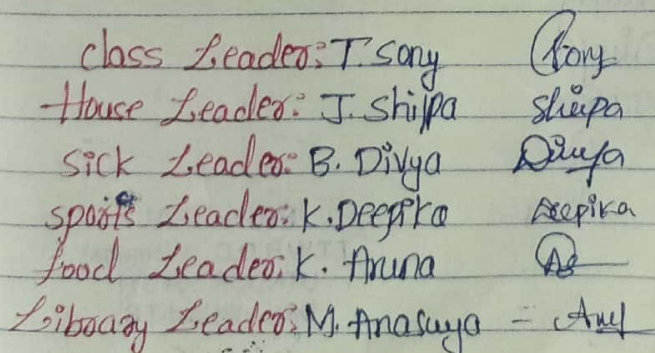 class Leader: T. Sony Sony
House Leader: J. Shilpa Shilpa
Sick Leader: B. Divya Divya
sports Leader: K. Deepika Deepika
food Leader: K. Aruna
Library Leader: M. Anasuya -